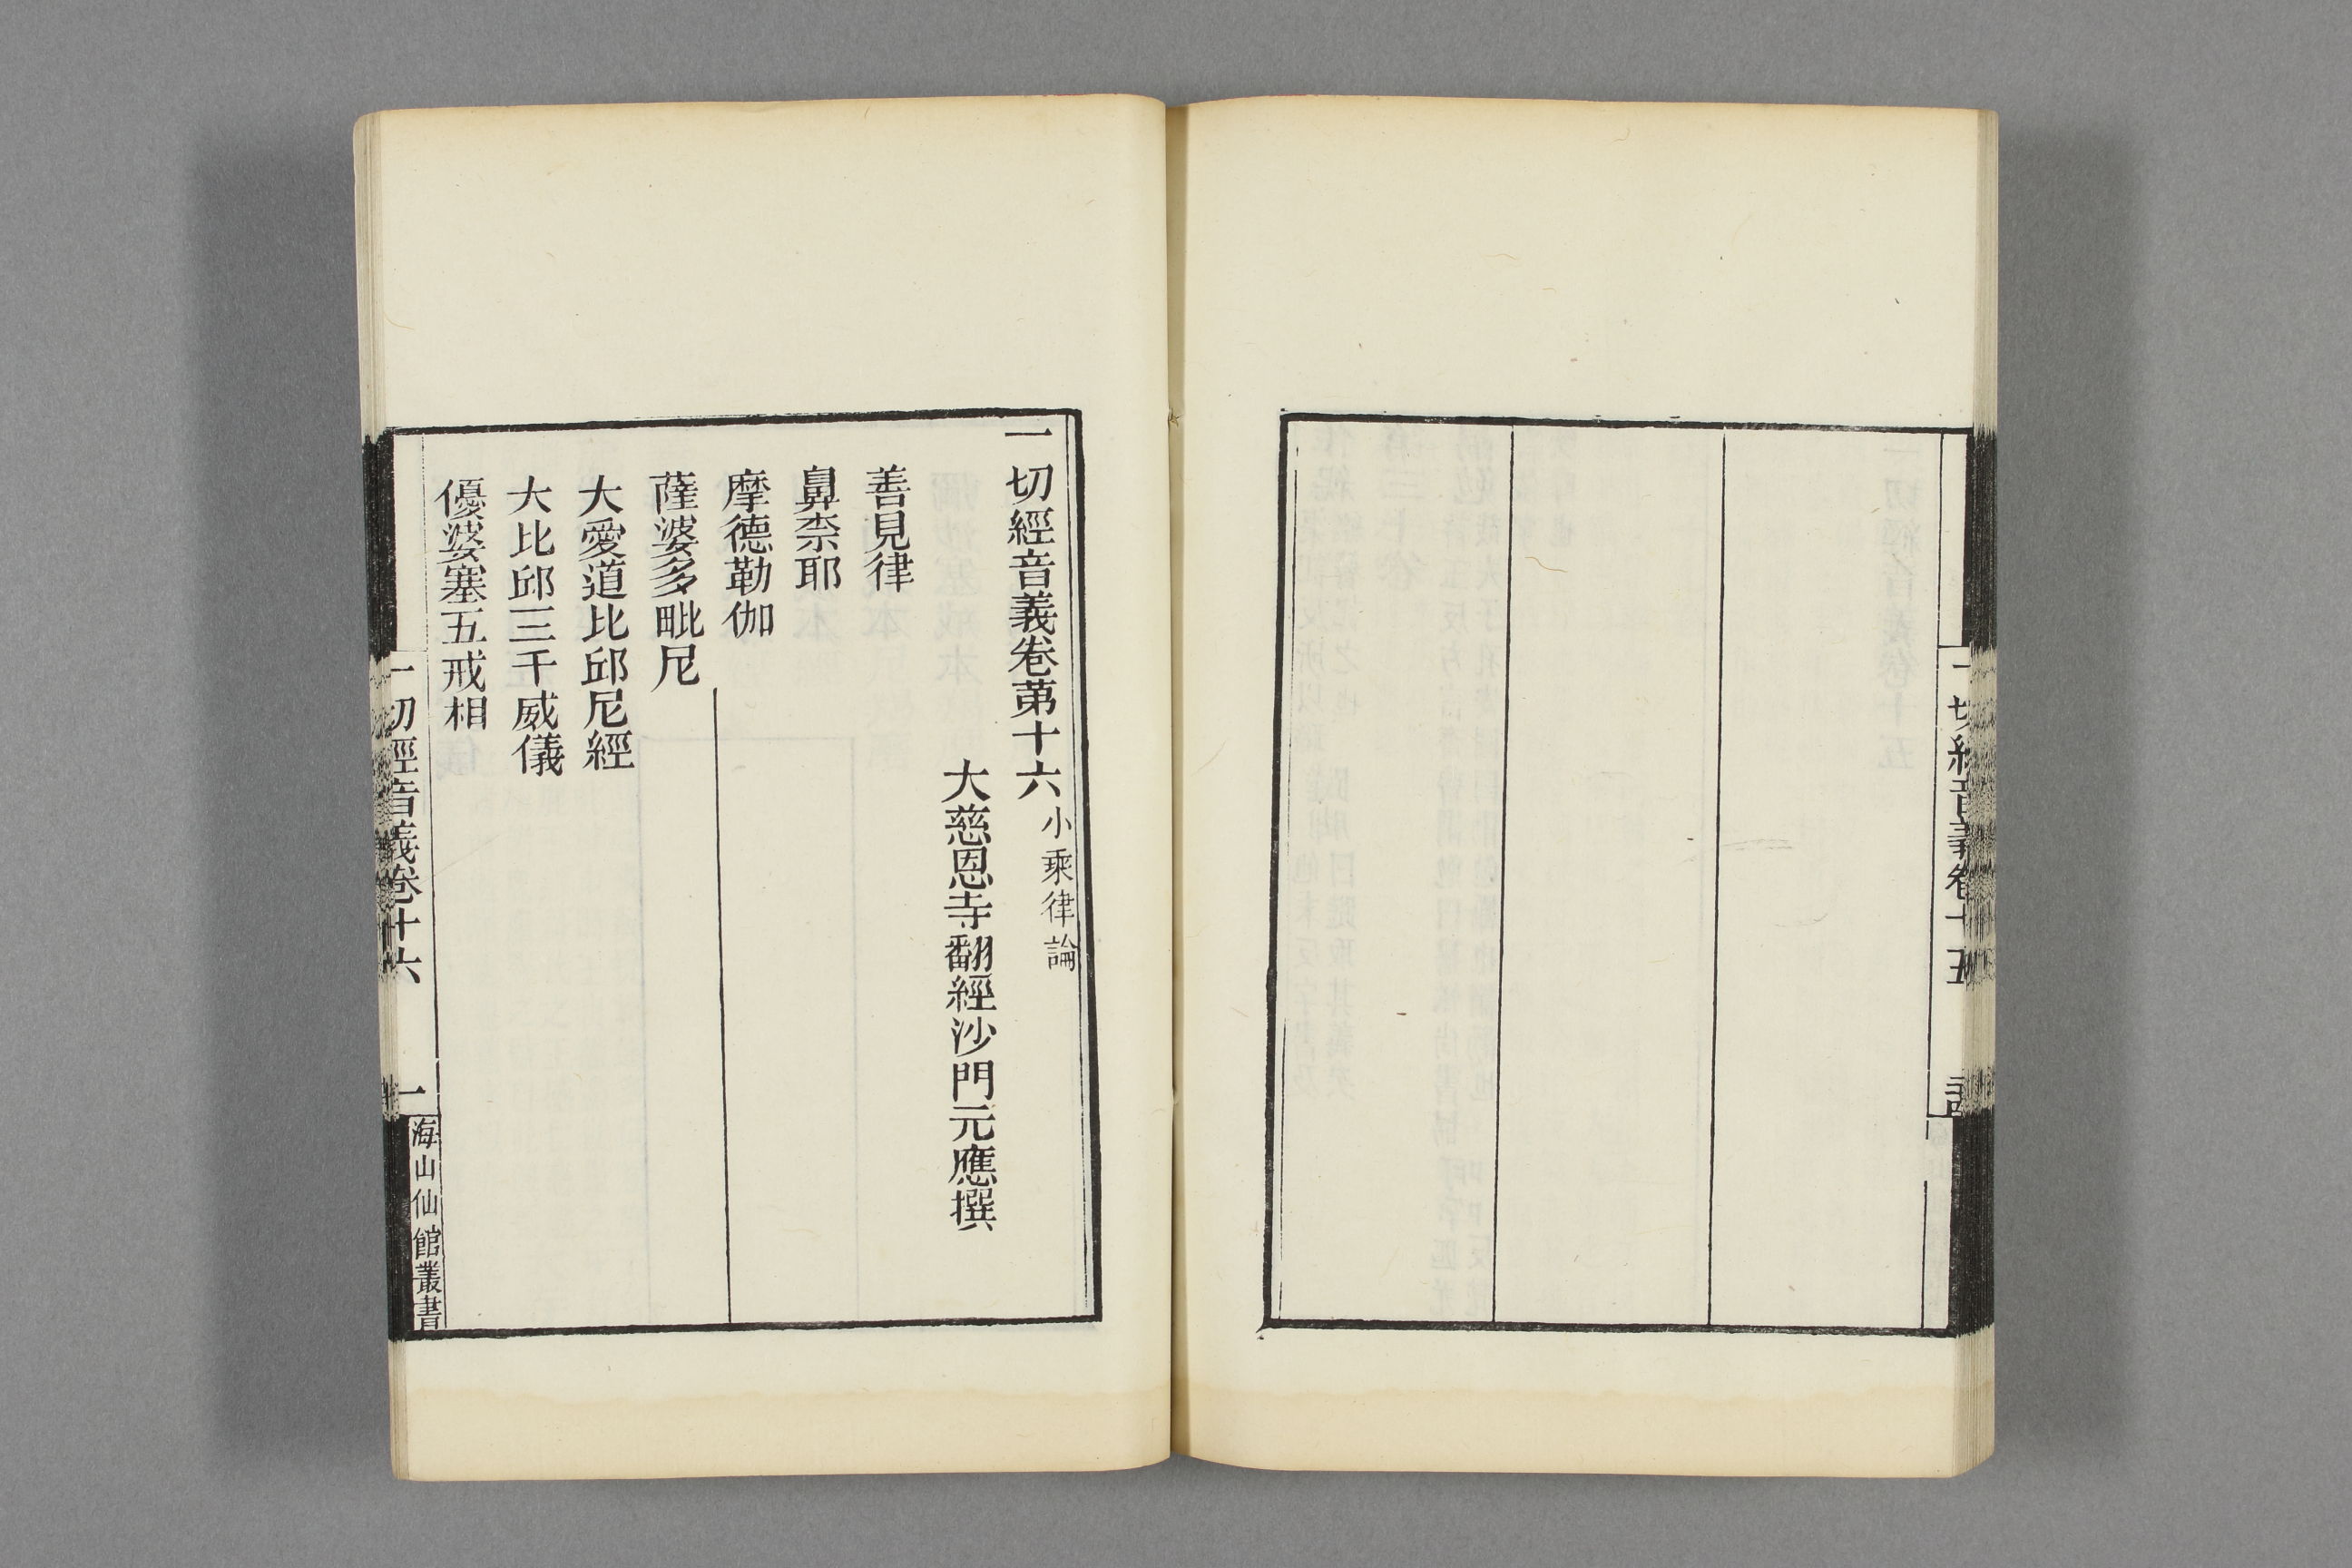 一切經音義卷十五
一切經音義卷第十六小乘律論
大慈恩寺翻經沙門元應撰
善見律
鼻柰耶
摩德勒伽
薩婆多毗尼
大愛道比邱尼經
大比邱三千威儀
優婆塞五戒相
一切經音義卷十六
一
海山仙館叢書